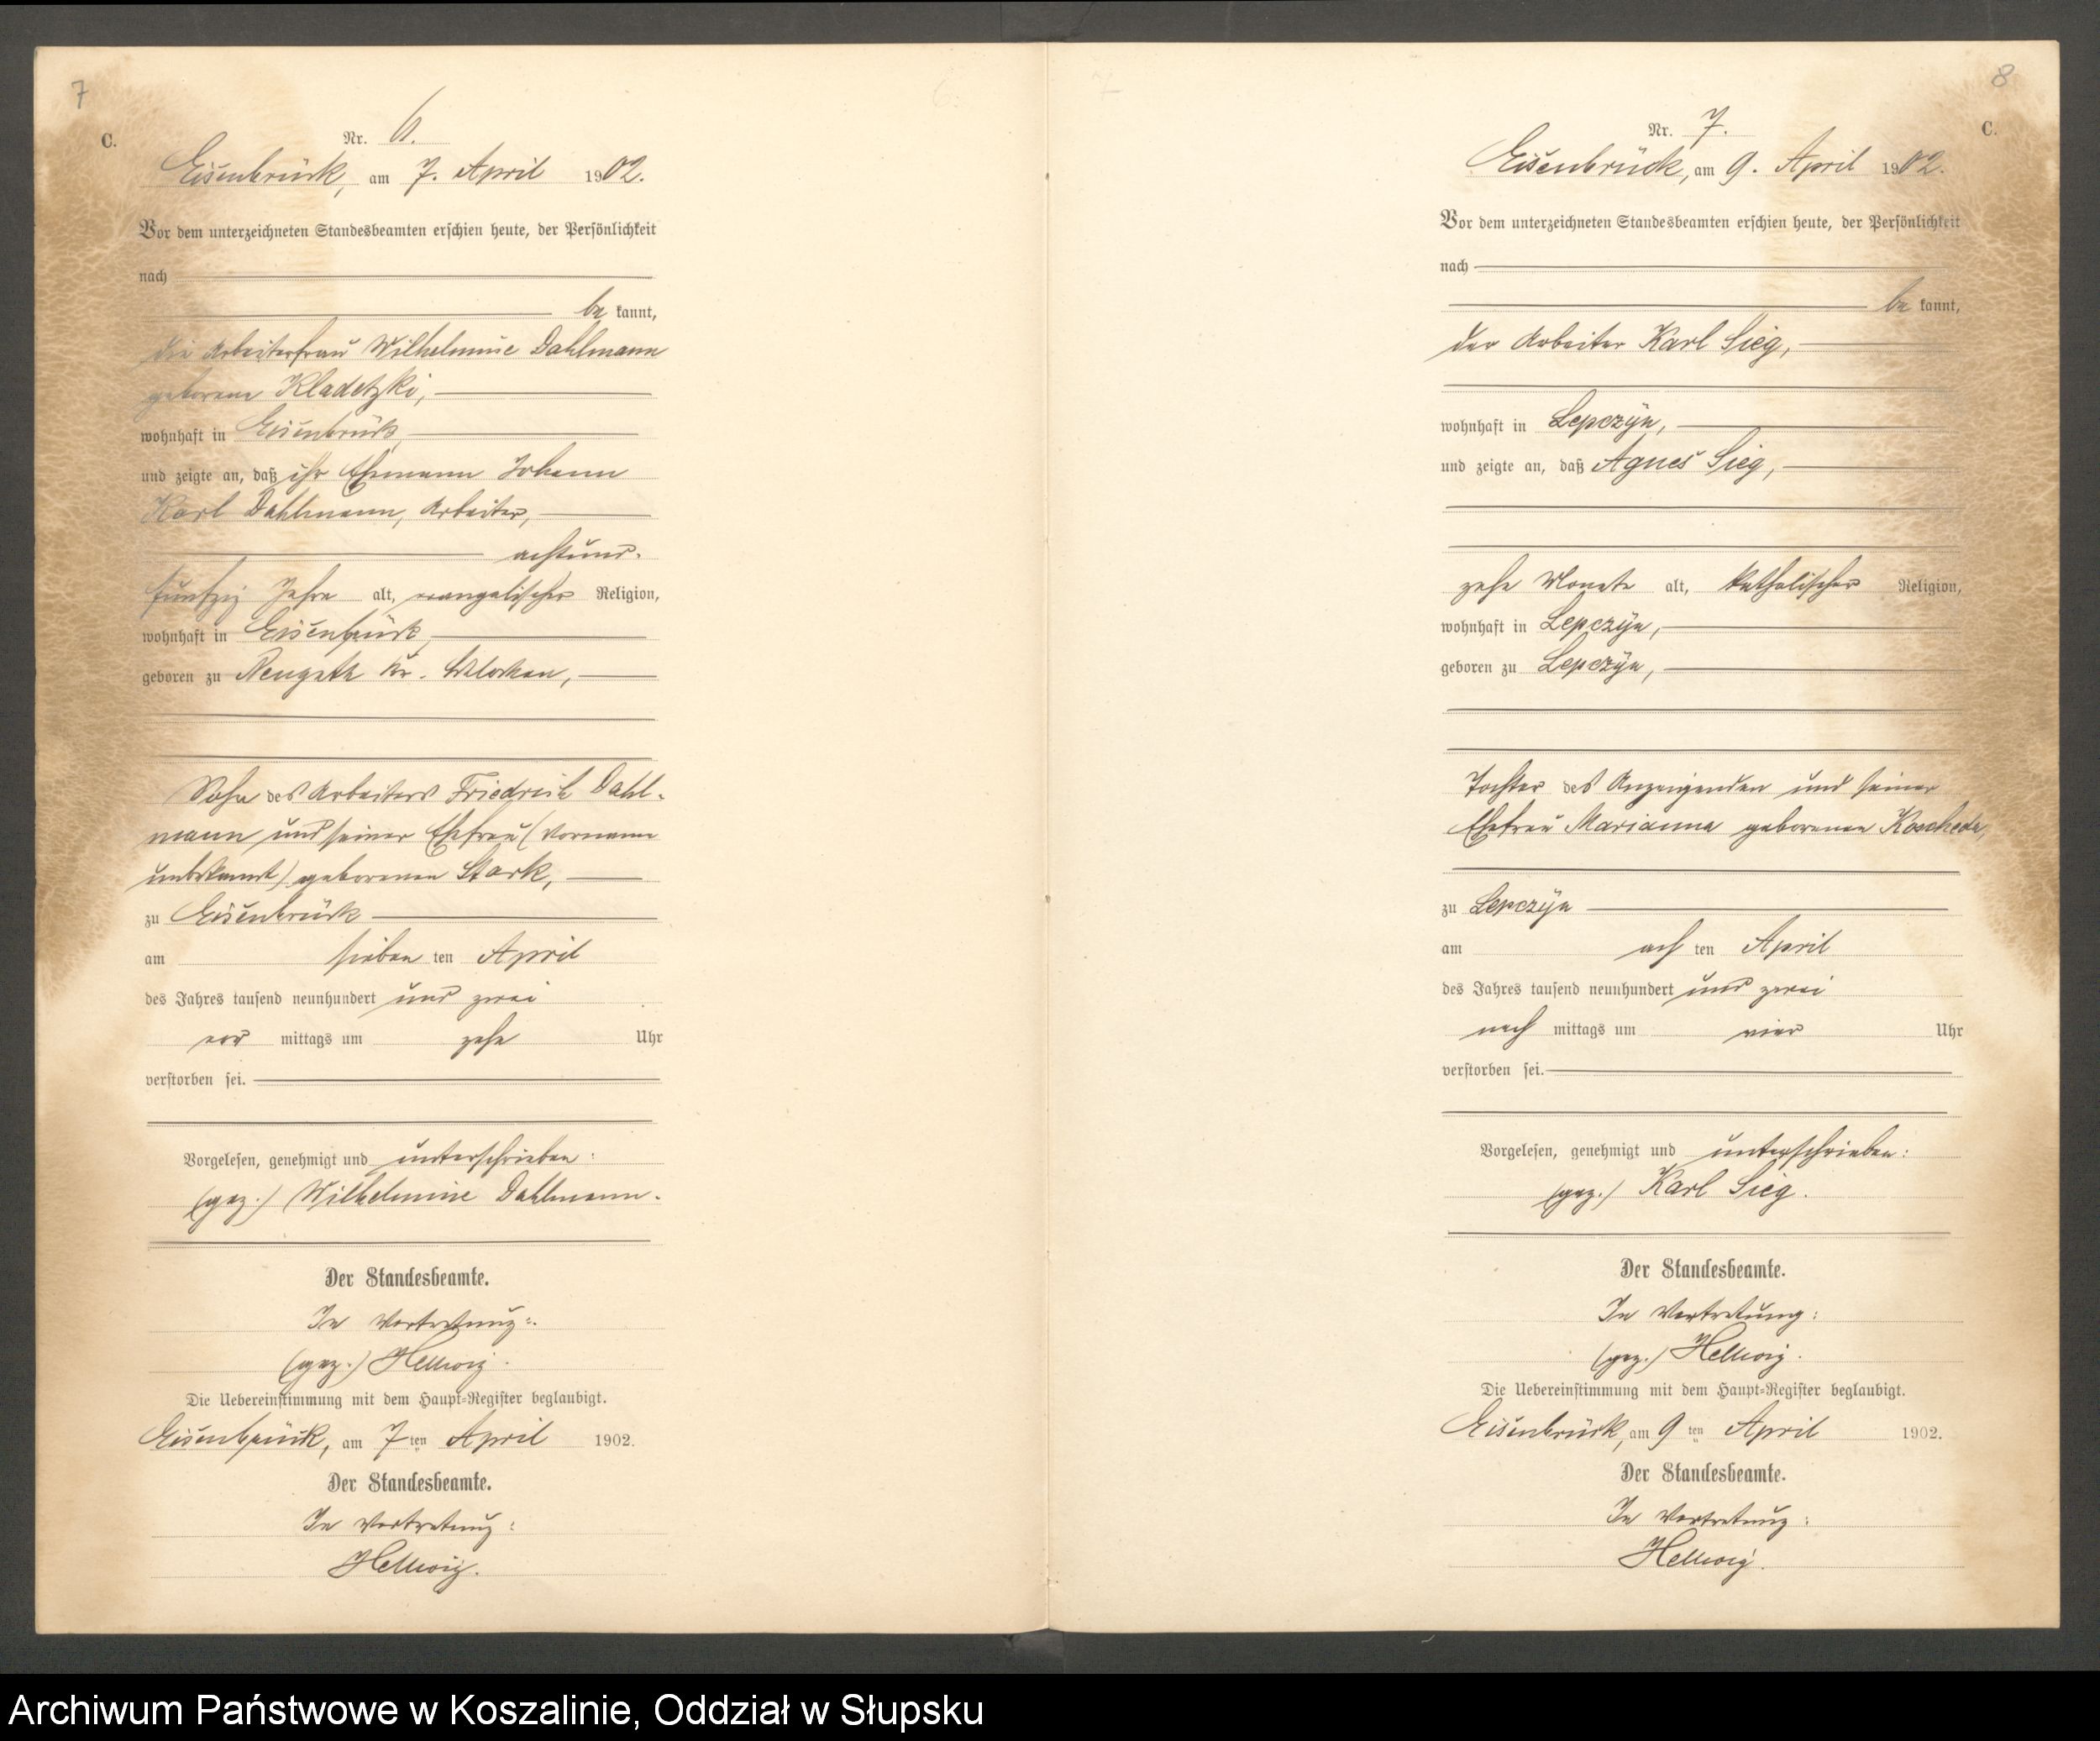 7
C.
Nr. 6.
Eisenbrück, am 7. April 1902.
Vor dem unterzeichneten Standesbeamten erschien heute, der Persönlichkeit
nach
be kannt,
die Arbeiterfrau Wilhelmine Dahlmann
geborene Kladetzki,
wohnhaft in Eisenbrück,
und zeigte an, daß ihr Ehemann Johann
Karl Dahlmann, Arbeiter,
achtund-
fünfzig Jahre alt, evangelischer Religion,
wohnhaft in Eisenbrück,
geboren zu Kr.
Sohn des Arbeiters Friedrich Dahl-
mann und seiner Ehefrau (Vorname
unbekannt) geborenen Stark,
zu Eisenbrück
am sieben ten April
des Jahres tausend neunhundert und zwei
vor mittags um zehn Uhr
verstorben sei.
Vorgelesen, genehmigt und unterschrieben:
(gez.) Wilhelmine Dahlmann.
Der Standesbeamte.
In Vertretung:
(gez.) Hellwig.
Die Uebereinstimmung mit dem Haupt-Register beglaubigt.
Eisenbrück, am 7ten April 1902.
Der Standesbeamte.
In Vertretung:
Hellwig.
8
C.
Nr. 7.
Eisenbrück, am 9. April 1902.
Vor dem unterzeichneten Standesbeamten erschien heute, der Persönlichkeit
nach
be kannt,
der Arbeiter Karl Sieg,
wohnhaft in Lepczyn,
und zeigte an, daß Agnes Sieg,
zehn Monate alt, katholischer Religion,
wohnhaft in Lepczyn,
geboren zu Lepczyn,
Tochter des Anzeigenden und seiner
Ehefrau Marianna geborenen Koscheda,
zu Lepczyn
am ach ten April
des Jahres tausend neunhundert und zwei
nach mittags um vier Uhr
verstorben sei.
Vorgelesen, genehmigt und unterschrieben:
(gez.) Karl Sieg.
Der Standesbeamte.
In Vertretung:
(gez.) Hellwig.
Die Uebereinstimmung mit dem Haupt-Register beglaubigt.
Eisenbrück, am 9ten April 1902.
Der Standesbeamte.
In Vertretung:
Hellwig.
Archiwum Państwowe w Koszalinie, Oddział w Słupsku